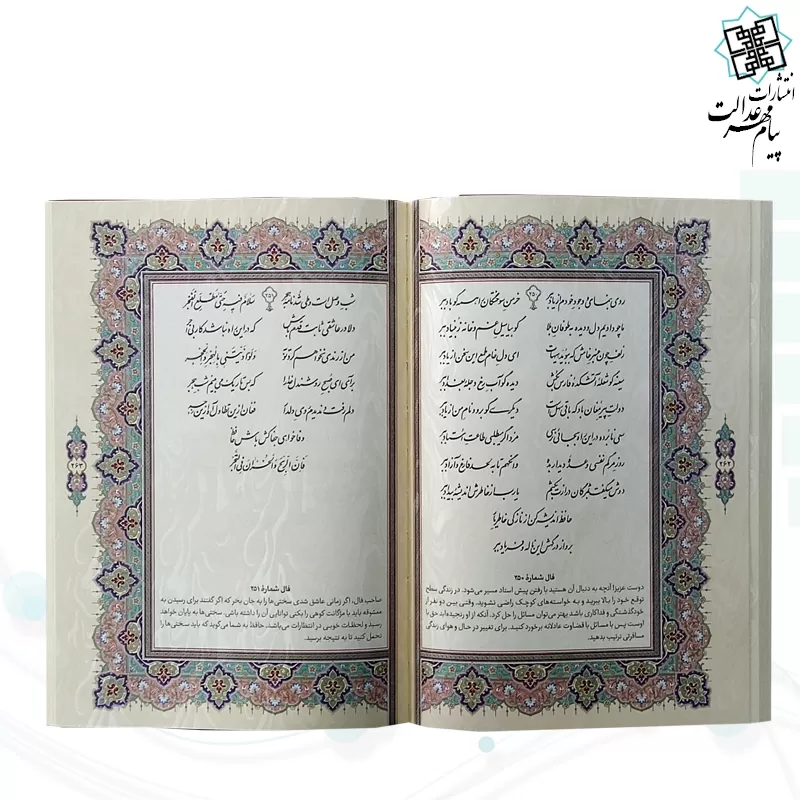 انتشارات
پیام مهر عدالت
۲۵۰
روی بنما و وجود خودم از یاد ببر
خرمن سوختگان را همه گو باد ببر
ما چو دادیم دل و دیده به طوفان بلا
گو بیا سیل غم و خانه ز بنیاد ببر
زلف چون عنبر خامش که ببوید هیهات
ای دل خام طمع این سخن از یاد ببر
سینه گو شعله آتشکده فارس بکش
دیده گو آب رخ دجله بغداد ببر
دولت پیر مغان باد که باقی سهل است
دیگری گو برو و نام من از یاد ببر
سعی نابرده در این راه به جایی نرسی
مزد اگر می‌طلبی طاعت استاد ببر
روز مرگم نفسی وعده دیدار بده
وانگهم تا به لحد فارغ و آزاد ببر
دوش می‌گفت به مژگان درازت بکشم
یا رب از خاطرش اندیشه بیداد ببر
حافظ اندیشه کن از نازکی خاطر یار
برو از درگهش این ناله و فریاد ببر
فال شمارهٔ ۲۵۰
دوست عزیز! آنچه به دنبال آن هستید با رفتن پیش استاد مسیر می‌شود. در زندگی سطح
توقع خود را بالا ببرید و به خواسته‌های کوچک راضی نشوید. وقتی بین دو نفر از
خودگذشتگی و فداکاری باشد بهتر می‌توان مسائل را حل کرد. آنکه از او رنجیده‌اید حق با
اوست پس با مسائل با قضاوت عادلانه برخورد کنید. برای تغییر در حال و هوای زندگی
مسافرتی ترتیب بدهید.
۲۶۲
۲۵۱
شب وصل است و طی شد نامه هجر
سلام فیه حتی مطلع الفجر
دلا در عاشقی ثابت قدم باش
که در این ره نباشد کار بی اجر
من از رندی نخواهم کرد توبه
ولو آذیتنی بالهجر والحجر
برآی ای صبح روشن دل خدا را
که بس تاریک می‌بینم شب هجر
دلم رفت و ندیدم روی دلدار
فغان از این تطاول آه از این زجر
وفا خواهی جفاکش باش حافظ
فإن الربح والخسران فی التجر
فال شمارهٔ ۲۵۱
صاحب فال، اگر زمانی عاشق شدی سختی‌ها را به جان بخر که اگر گفتند برای رسیدن به
معشوقه باید با مژگانت کوهی را بکنی توانایی آن را داشته باشی. سختی‌ها به پایان خواهد
رسید و لحظات خوبی در انتظارات می‌باشد. حافظ به شما می‌گوید که باید سختی‌ها را
تحمل کنید تا به نتیجه برسید.
۲۶۳